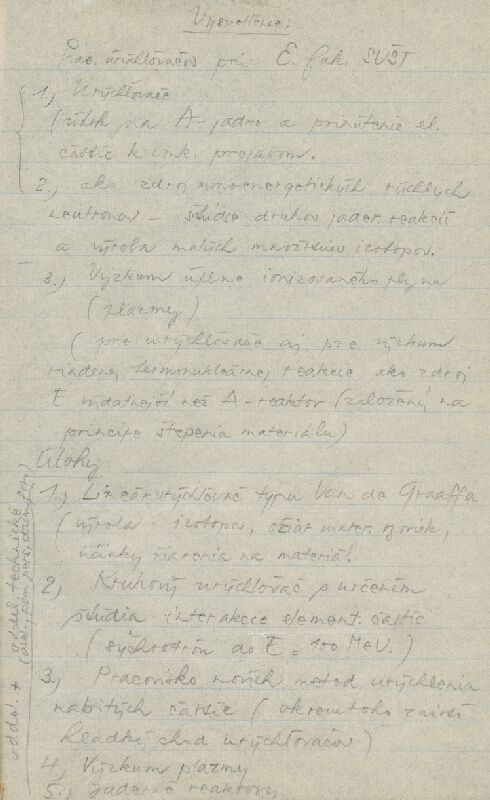 Vysvetlenie:
Prac. urýchľovačov pri E. fak. SVŠT
1.) Urýchľovače
(útok na A-jadro a prinútenie el.
častíc k vznik. prejavom.
2.) ako zdroj monoenergetických rýchlych
neutronov – štúdie druhov jader. reakcií
a výroba malých množstiev izotopov.
3.) Výzkum úplne ionizovaného plynu
(plazmy)
(pre urýchľovače aj pre výzkum
riadenej termonukleárnej reakcie ako zdroj
E výdatnejší než A-reaktor (založený na
principe štepenia materiálu)
Úlohy:
1.) Lineár. urýchľovač typu Van de Graaffa
(výroba izotopov, ožiar. mater. vzoriek,
účinky žiarenia na materiál.
2.) Kruhový urýchľovač s určením
štúdia interakcie element. častíc
(sychrotrón do E = 100 MeV.)
3.) Pracovisko nových metod urýchlenia
nabitých častíc (okrem toho zaistí
hladký chod urýchľovačov)
4.) Výzkum plazmy
5.) Jaderné reaktory
oddel. + oddel. technické